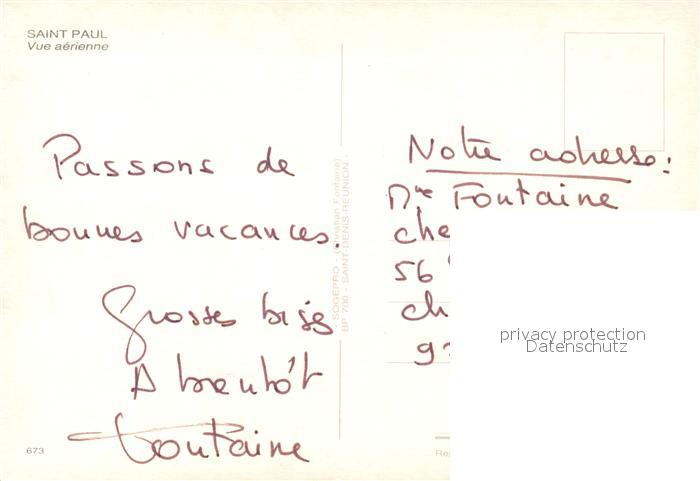 SAINT PAUL
Vue aérienne
Passons de
bonnes vacances.
Grosses bises
A bientôt
Fontaine
673
SOGEPRO - (Christian Fontaine)
BP 700 - SAINT-DENIS-REUNION
Notre adresse:
Mme Fontaine
che
56
ch
privacy protection
Datenschutz